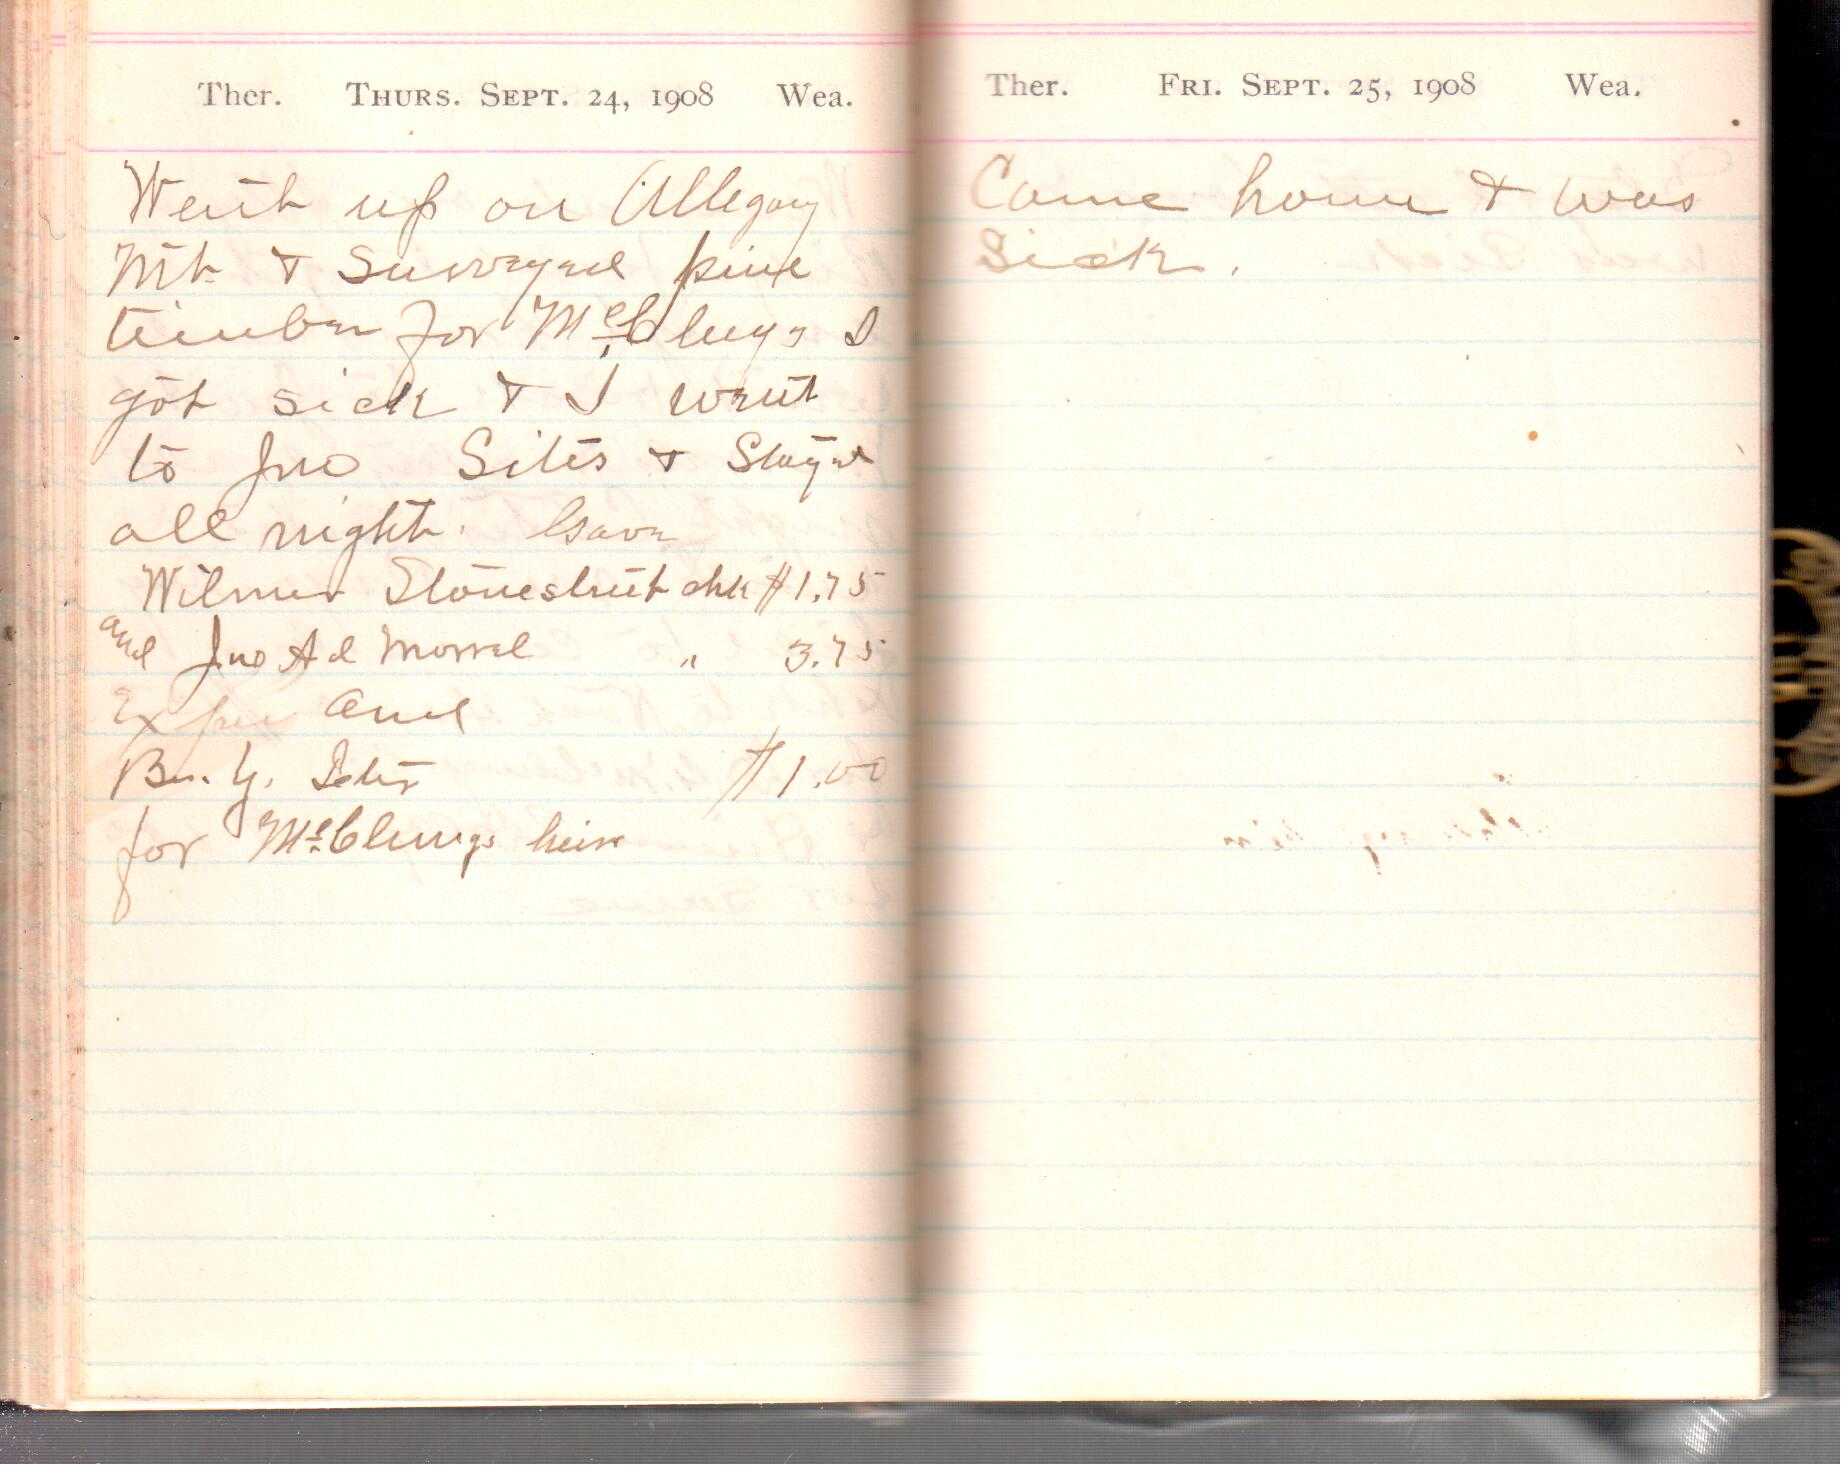 Ther. Thurs. Sept. 24, 1908 Wea.
Went up on Allegany
Mt. & Surveyed pine
timber for McClungs I
got sick & I went
to Jno Sites & Stayed
all night. Gave
Wilmer Stonestreet chk $1.75
and Jno Ad Morral " 3.75
Expen and
$1.00
for McClungs heirs
Ther. Fri. Sept. 25, 1908 Wea.
Came home & was
Sick.